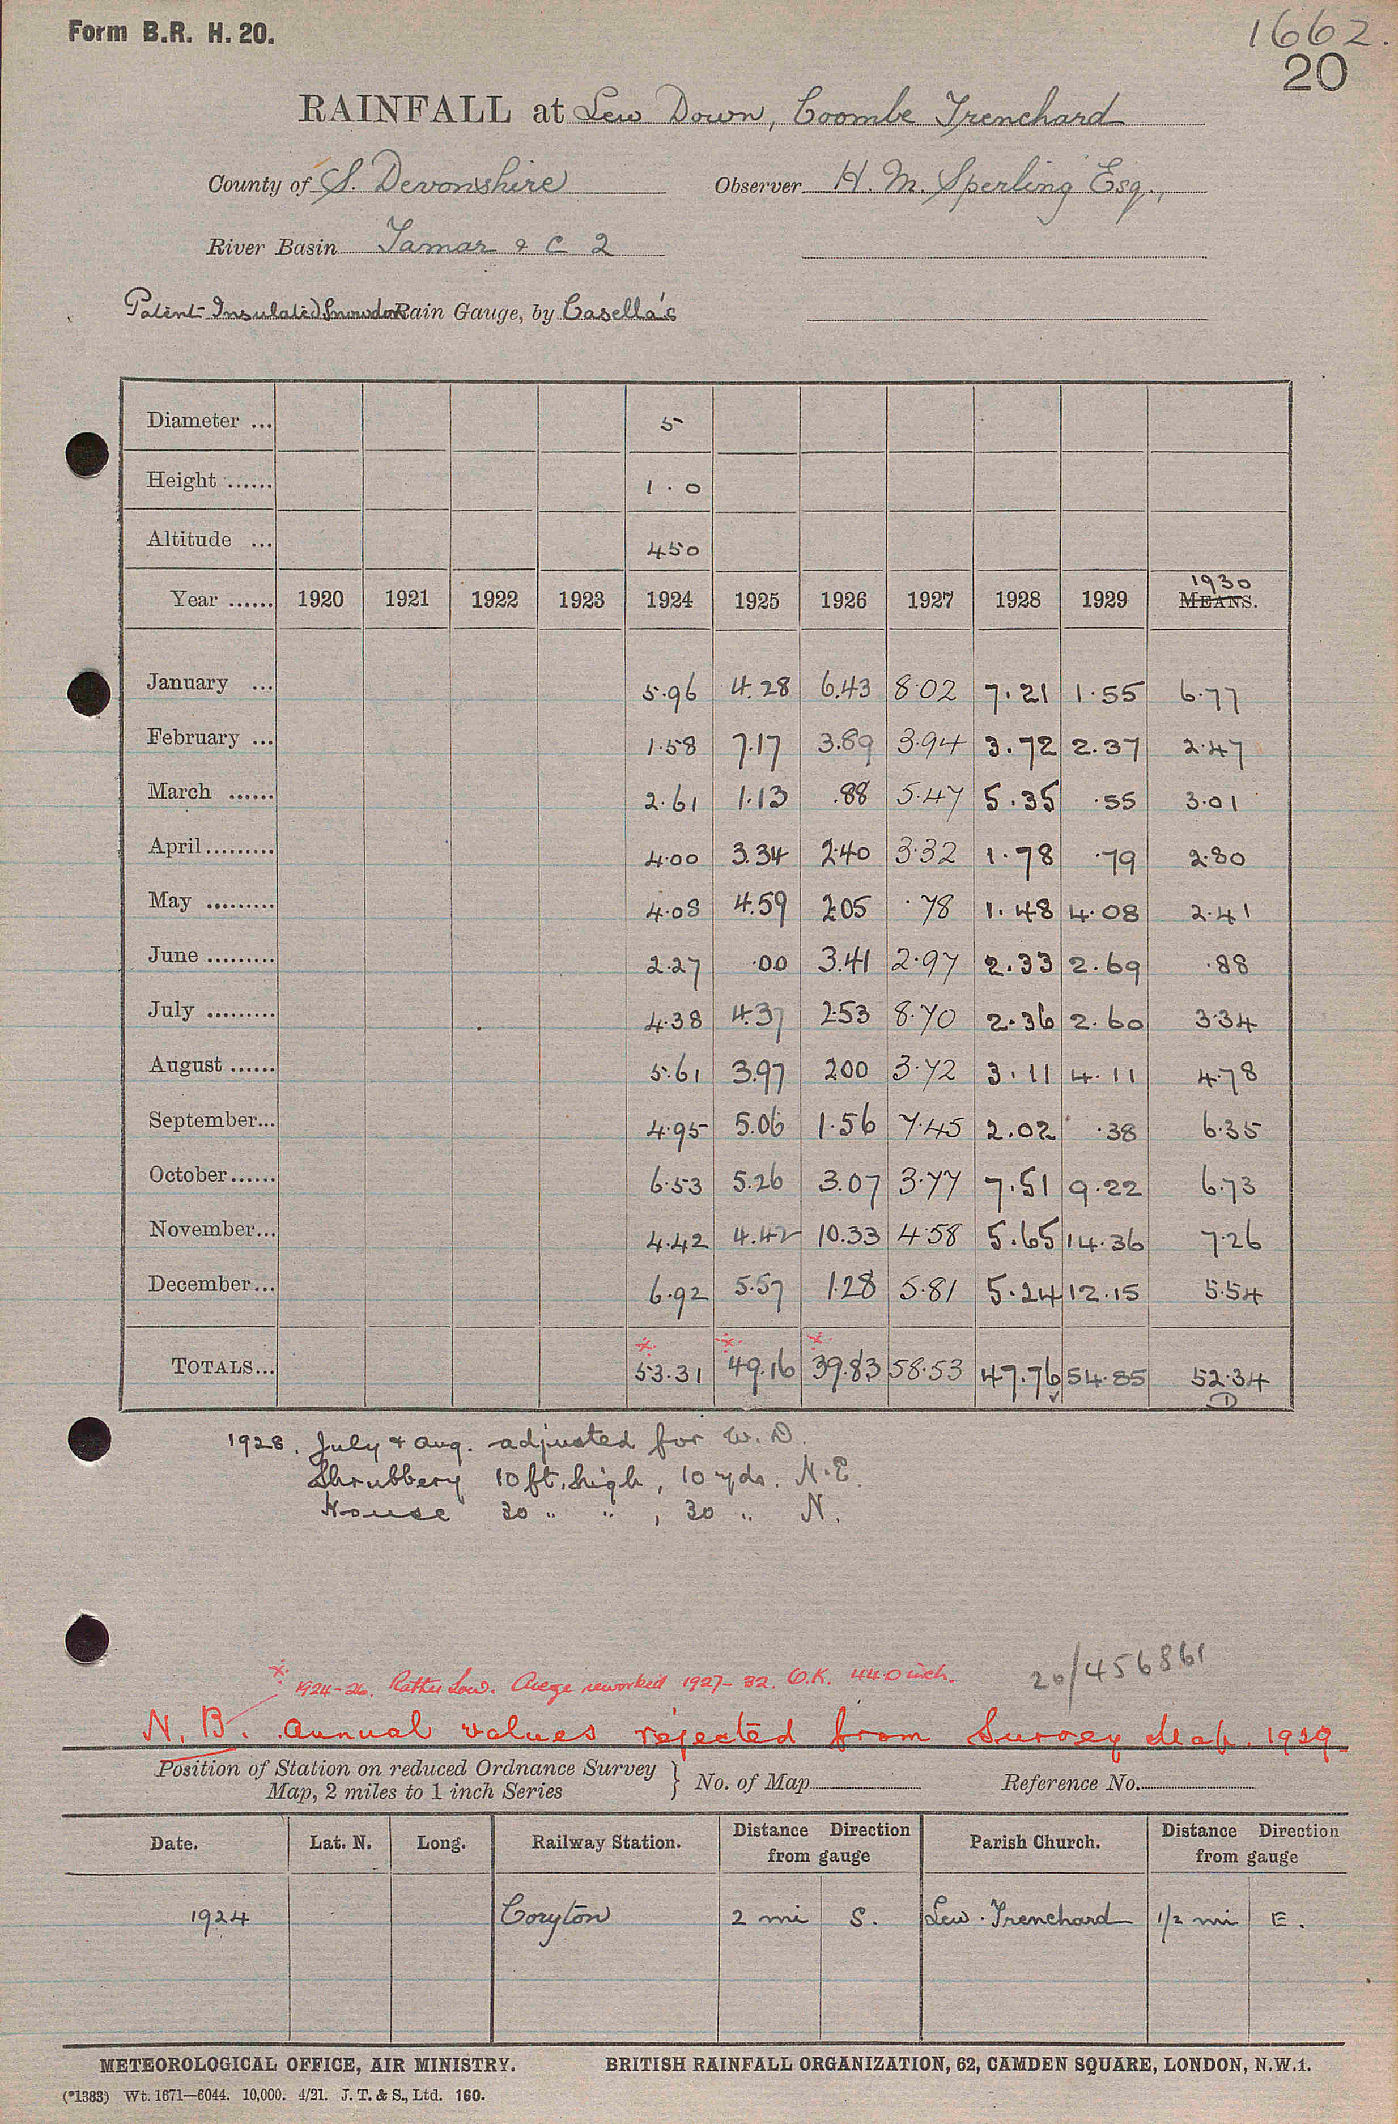 Form B.R. H. 20.
1662.
20
RAINFALL at Lew Down, Coombe Trenchard
County of S. Devonshire Observer H. M. Sperling Esq.,
River Basin Tamar & C 2
Patent Insulated Snowdon Rain Gauge, by Casella's
Diameter ... 5
Height ...... 1.0
Altitude ... 450
1930
Year ...... 1920 1921 1922 1923 1924 1925 1926 1927 1928 1929 MEANS.
January ... 5.96 4.28 6.43 8.02 7.21 1.55 6.77
February ... 1.58 7.17 3.89 3.94 3.72 2.37 2.47
March ...... 2.61 1.13 .88 5.47 5.35 .55 3.01
April ......... 4.00 3.34 2.40 3.32 1.78 .79 2.80
May ......... 4.08 4.59 2.05 .78 1.48 4.08 2.41
June ......... 2.27 .00 3.41 2.97 2.33 2.69 .88
July ......... 4.38 4.37 2.53 8.70 2.36 2.60 3.34
August ...... 5.61 3.97 2.00 3.72 3.11 4.11 4.78
September... 4.95 5.06 1.56 7.45 2.02 .38 6.35
October...... 6.53 5.26 3.07 3.77 7.51 9.22 6.73
November... 4.42 4.42 10.33 4.58 5.65 14.36 7.26
December... 6.92 5.57 1.28 5.81 5.24 12.15 5.54
* * *
TOTALS... 53.31 49.16 39.83 58.53 47.76 54.85 52.34
1928. July & Aug. adjusted for W. D.
Shrubbery 10 ft. high, 10 yds. N.E.
House 30 " " , 30 " N.
20/456861
* 1924-26. Rather Low. Avege reworked 1927-32. O.K. 44.0 inch.
N.B. Annual values rejected from Survey Map. 1929
Position of Station on reduced Ordnance Survey
Map, 2 miles to 1 inch Series } No. of Map Reference No.
Date. Lat. N. Long. Railway Station. Distance Direction from gauge Parish Church. Distance Direction from gauge
1924 Coryton 2 mi S. Lew. Trenchard 1/2 mi E.
METEOROLOGICAL OFFICE, AIR MINISTRY. BRITISH RAINFALL ORGANIZATION, 62, CAMDEN SQUARE, LONDON, N.W.1.
(*1383) Wt. 1671—6044. 10,000. 4/21. J. T. & S., Ltd. 160.